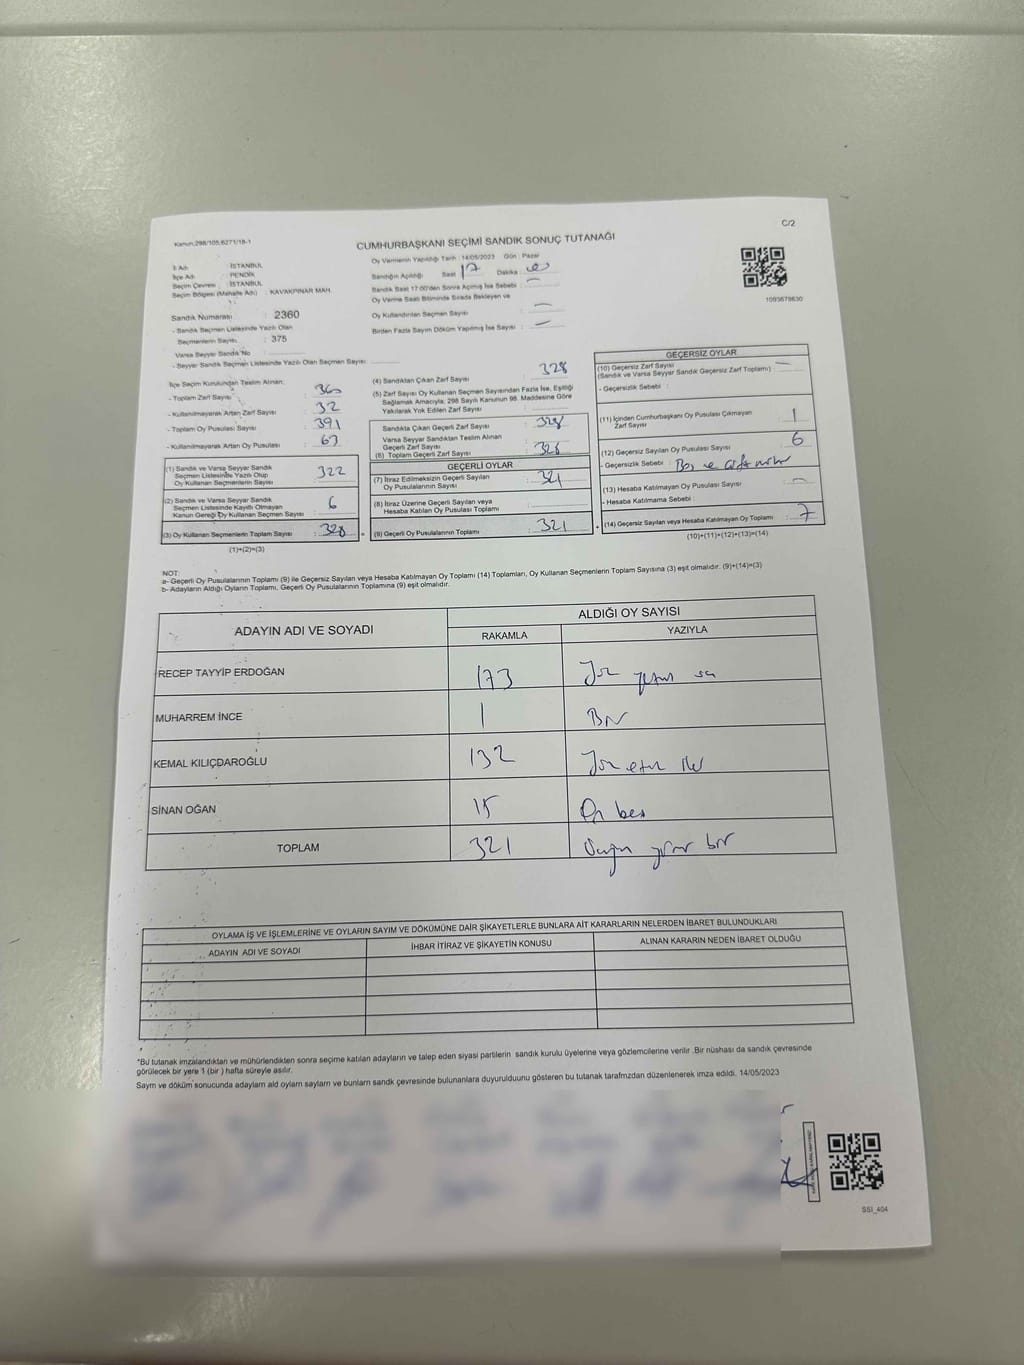 Kanun:298/105,6271/18-1
C/2
CUMHURBAŞKANI SEÇİMİ SANDIK SONUÇ TUTANAĞI
İl Adı : İSTANBUL
İlçe Adı : PENDİK
Seçim Çevresi : İSTANBUL
Seçim Bölgesi (Mahalle Adı) : KAVAKPINAR MAH.
Sandık Numarası : 2360
- Sandık Seçmen Listesinde Yazılı Olan
Seçmenlerin Sayısı : 375
Varsa Seyyar Sandık No :
- Seyyar Sandık Seçmen Listesinde Yazılı Olan Seçmen Sayısı :
Oy Vermenin Yapıldığı Tarih : 14/05/2023 Gün : Pazar
Sandığın Açıldığı Saat 17 Dakika
Sandık Saat 17:00'den Sonra Açılmış İse Sebebi :
Oy Verme Saati Bitiminde Sırada Bekleyen ve
Oy Kullandırılan Seçmen Sayısı :
Birden Fazla Sayım Döküm Yapılmış İse Sayısı :
1093678630
İlçe Seçim Kurulundan Teslim Alınan;
- Toplam Zarf Sayısı : 360
- Kullanılmayarak Artan Zarf Sayısı : 32
- Toplam Oy Pusulası Sayısı : 391
- Kullanılmayarak Artan Oy Pusulası : 63
(1) Sandık ve Varsa Seyyar Sandık
Seçmen Listesinde Yazılı Olup
Oy Kullanan Seçmenlerin Sayısı : 322
(2) Sandık ve Varsa Seyyar Sandık
Seçmen Listesinde Kayıtlı Olmayan
Kanun Gereği Oy Kullanan Seçmen Sayısı : 6
(3) Oy Kullanan Seçmenlerin Toplam Sayısı : 328
(1)+(2)=(3)
(4) Sandıktan Çıkan Zarf Sayısı : 328
(5) Zarf Sayısı Oy Kullanan Seçmen Sayısından Fazla İse, Eşitliği
Sağlamak Amacıyla; 298 Sayılı Kanunun 98. Maddesine Göre
Yakılarak Yok Edilen Zarf Sayısı :
Sandıkta Çıkan Geçerli Zarf Sayısı : 328
Varsa Seyyar Sandıktan Teslim Alınan
Geçerli Zarf Sayısı :
(6) Toplam Geçerli Zarf Sayısı : 328
GEÇERLİ OYLAR
(7) İtiraz Edilmeksizin Geçerli Sayılan
Oy Pusulalarının Sayısı : 321
(8) İtiraz Üzerine Geçerli Sayılan veya
Hesaba Katılan Oy Pusulası Toplamı :
(9) Geçerli Oy Pusulalarının Toplamı : 321
GEÇERSİZ OYLAR
(10) Geçersiz Zarf Sayısı :
(Sandık ve Varsa Seyyar Sandık Geçersiz Zarf Toplamı)
- Geçersizlik Sebebi :
(11) İçinden Cumhurbaşkanı Oy Pusulası Çıkmayan
Zarf Sayısı : 1
(12) Geçersiz Sayılan Oy Pusulası Sayısı : 6
- Geçersizlik Sebebi : Boş ve
(13) Hesaba Katılmayan Oy Pusulası Sayısı :
- Hesaba Katılmama Sebebi :
(14) Geçersiz Sayılan veya Hesaba Katılmayan Oy Toplamı : 7
(10)+(11)+(12)+(13)=(14)
NOT:
a- Geçerli Oy Pusulalarının Toplamı (9) ile Geçersiz Sayılan veya Hesaba Katılmayan Oy Toplamı (14) Toplamları, Oy Kullanan Seçmenlerin Toplam Sayısına (3) eşit olmalıdır. (9)+(14)=(3)
b- Adayların Aldığı Oyların Toplamı, Geçerli Oy Pusulalarının Toplamına (9) eşit olmalıdır.
ADAYIN ADI VE SOYADI
ALDIĞI OY SAYISI
RAKAMLA YAZIYLA
RECEP TAYYİP ERDOĞAN 173
MUHARREM İNCE 1 Bir
KEMAL KILIÇDAROĞLU 132 Yüz otuz iki
SİNAN OĞAN 15 On beş
TOPLAM 321 Üçyüz yirmi bir
OYLAMA İŞ VE İŞLEMLERİNE VE OYLARIN SAYIM VE DÖKÜMÜNE DAİR ŞİKAYETLERLE BUNLARA AİT KARARLARIN NELERDEN İBARET BULUNDUKLARI
ADAYIN ADI VE SOYADI İHBAR İTİRAZ VE ŞİKAYETİN KONUSU ALINAN KARARIN NEDEN İBARET OLDUĞU
*Bu tutanak imzalandıktan ve mühürlendikten sonra seçime katılan adayların ve talep eden siyasi partilerin sandık kurulu üyelerine veya gözlemcilerine verilir .Bir nüshası da sandık çevresinde
görülecek bir yere 1 (bir ) hafta süreyle asılır.
Sayım ve döküm sonucunda adayların ald oyların sayların ve bunların sandk çevresinde bulunanlara duyurulduunu gösteren bu tutanak tarafmzdan düzenlenerek imza edildi. 14/05/2023
SSI_404